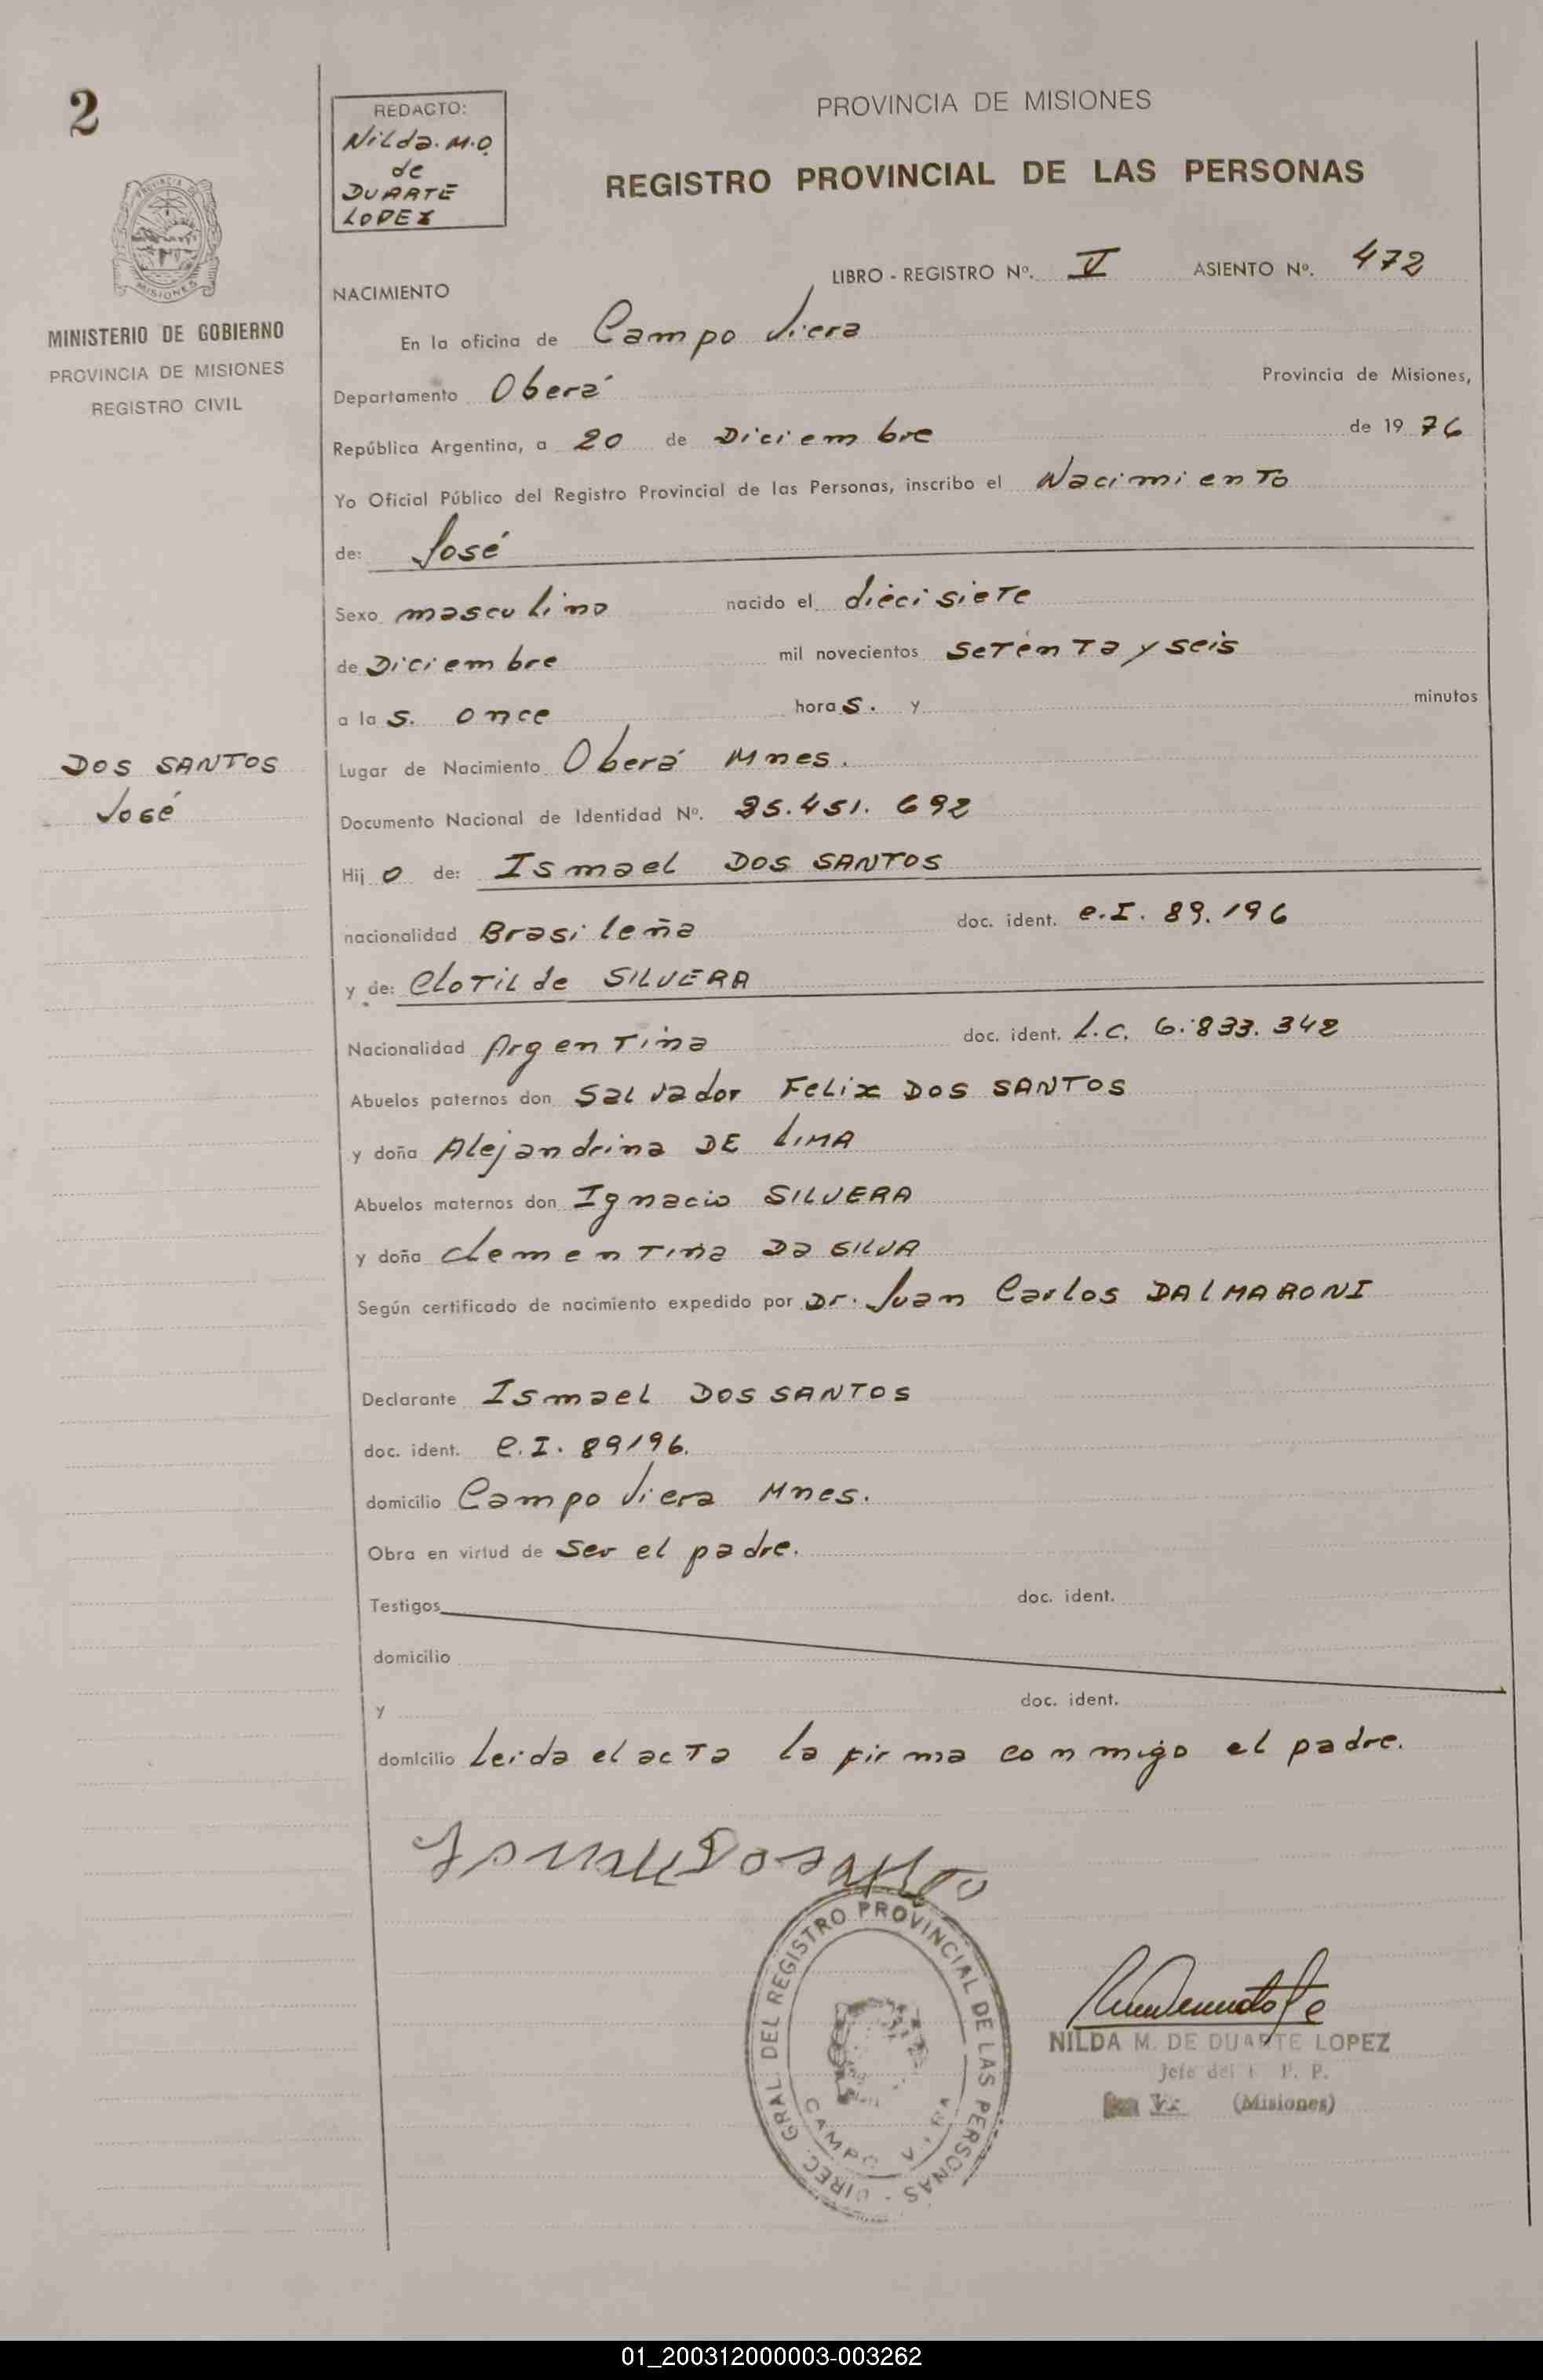 2
REDACTO:
Nilda. M.O.
de
DUARTE
LOPEZ
PROVINCIA DE MISIONES
REGISTRO PROVINCIAL DE LAS PERSONAS
MISIONES
MINISTERIO DE GOBIERNO
PROVINCIA DE MISIONES
REGISTRO CIVIL
LIBRO - REGISTRO Nº. V ASIENTO Nº. 472
NACIMIENTO
En la oficina de Campo Viera
Departamento Oberá Provincia de Misiones,
República Argentina, a 20 de Diciembre de 19 76
Yo Oficial Público del Registro Provincial de las Personas, inscribo el Nacimiento
de: José
Sexo masculino nacido el diecisiete
de Diciembre mil novecientos setenta y seis
a la s. once hora s. y minutos
DOS SANTOS
José
Lugar de Nacimiento Oberá Mnes.
Documento Nacional de Identidad Nº. 25.451.692
Hij o de: Ismael DOS SANTOS
nacionalidad Brasileña doc. ident. C.I. 89.196
y de: Clotilde SILVERA
Nacionalidad Argentina doc. ident. L.C. 6.833.342
Abuelos paternos don Salvador Felix DOS SANTOS
y doña Alejandrina DE LIMA
Abuelos maternos don Ignacio SILVERA
y doña Clementina Da SILVA
Según certificado de nacimiento expedido por Dr. Juan Carlos DALMARONI
Declarante Ismael DOS SANTOS
doc. ident. C.I. 89196.
domicilio Campo Viera Mnes.
Obra en virtud de Ser el padre.
Testigos doc. ident.
domicilio
y doc. ident.
domicilio Leida el acta la firma conmigo el padre.
DIREC. GRAL. DEL REGISTRO PROVINCIAL DE LAS PERSONAS
CAMPO VIERA
NILDA M. DE DUARTE LOPEZ
Jefe del R. P. P.
(Misiones)
01_200312000003-003262